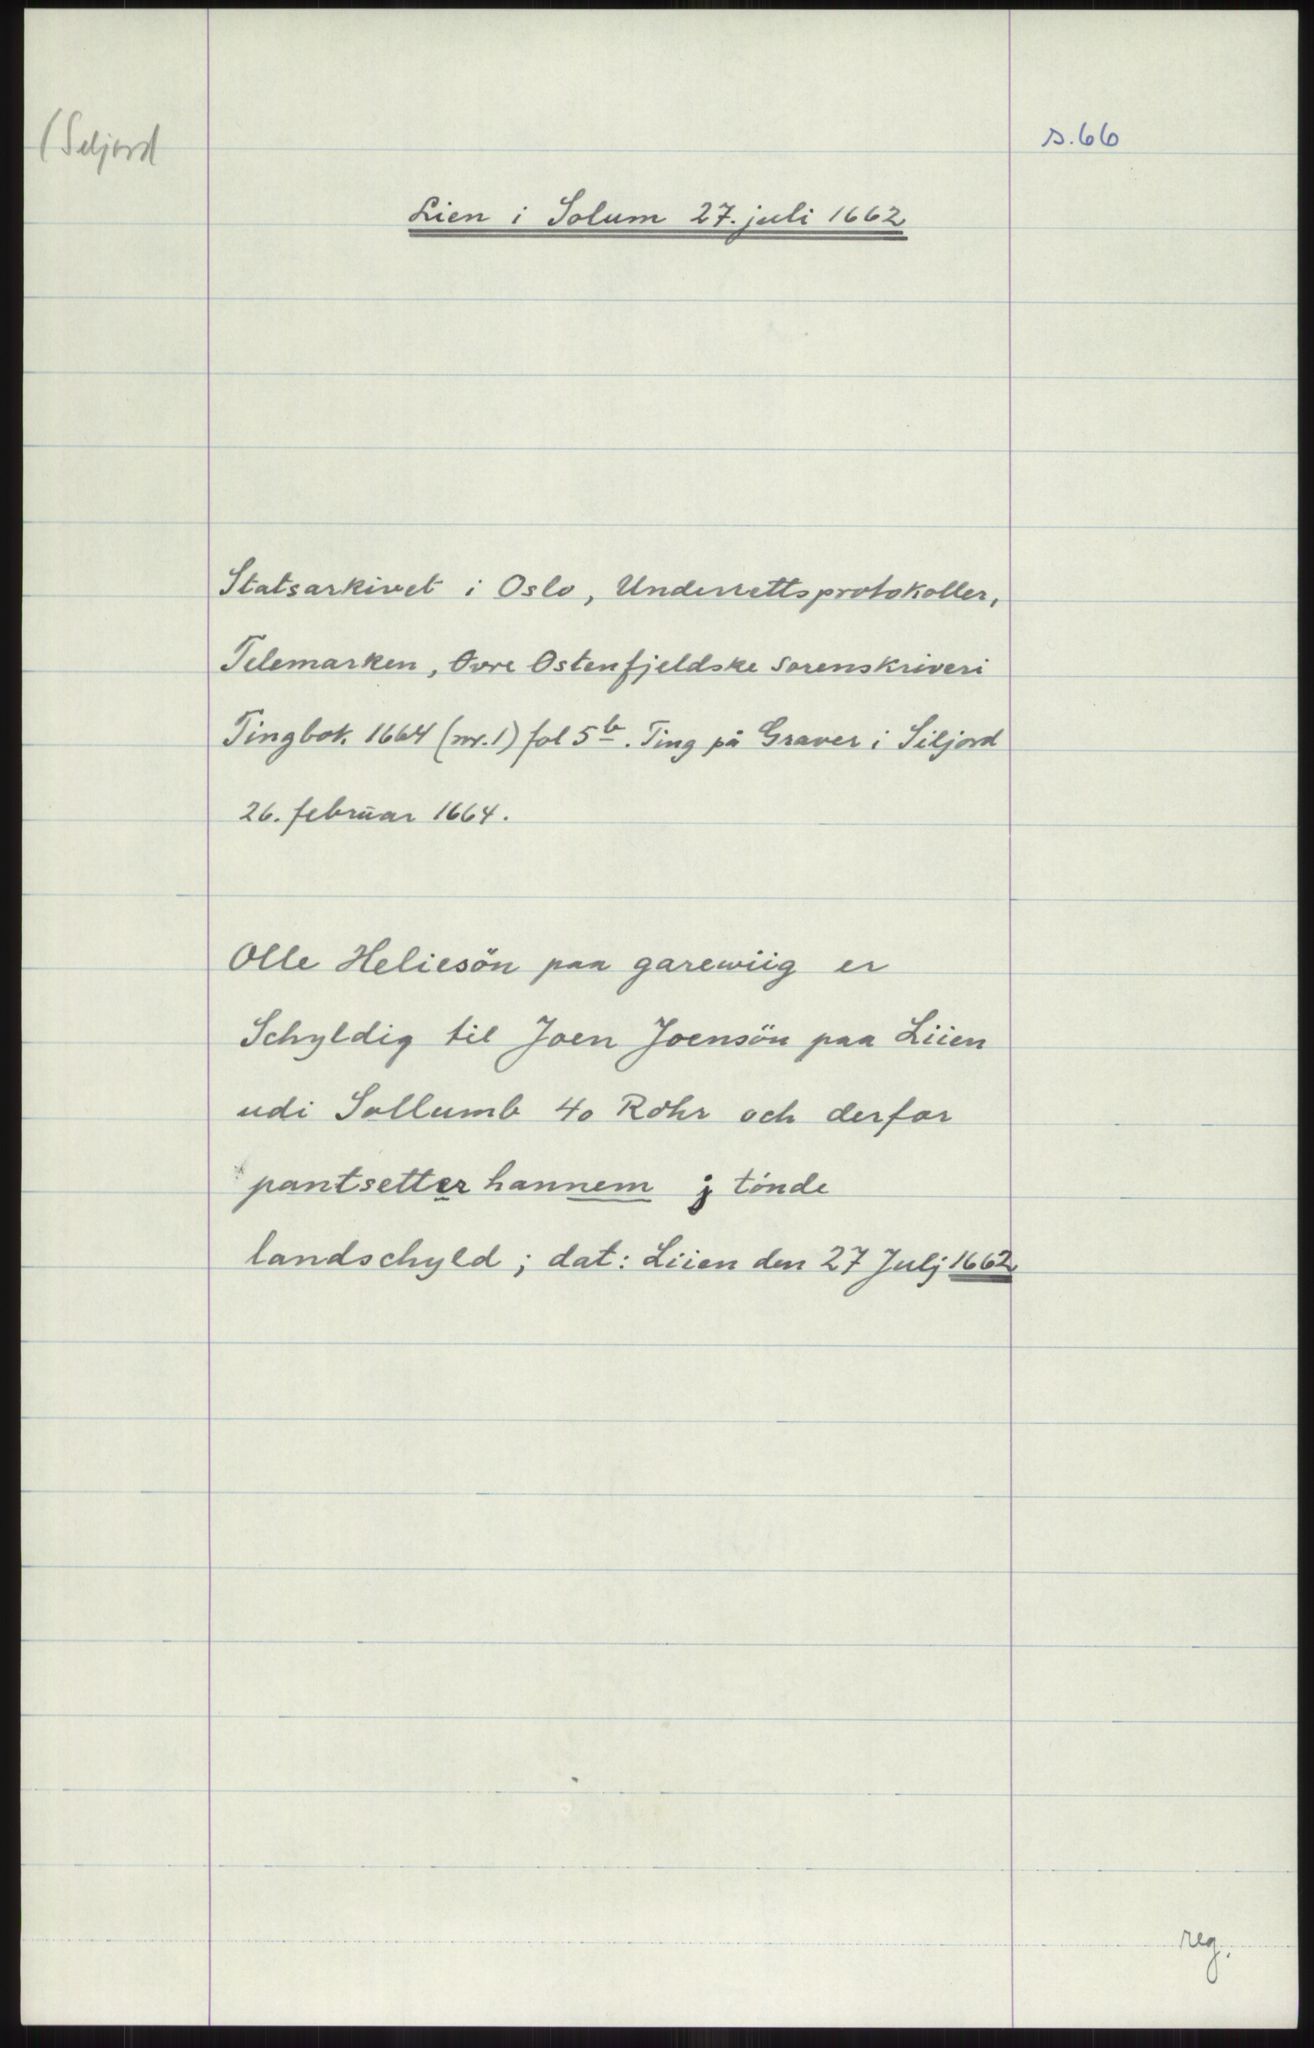 (Seljord
s.66
Lien i Solum 27. juli 1662
Statsarkivet i Oslo, Underrettsprotokoller,
Telemarken, Øvre Østenfjeldske sorenskriveri
Tingbok 1664 (nr.1) fol 5b. Ting på Graver i Siljord
26. februar 1664.
Olle Heliesön paa garewiig er
Schyldig til Joen Joensön paa Liien
udi Sollumb 40 Rdhr och derfor
pantsetter hannem j tönde
landschyld; dat: Liien den 27 Julj 1662
reg.